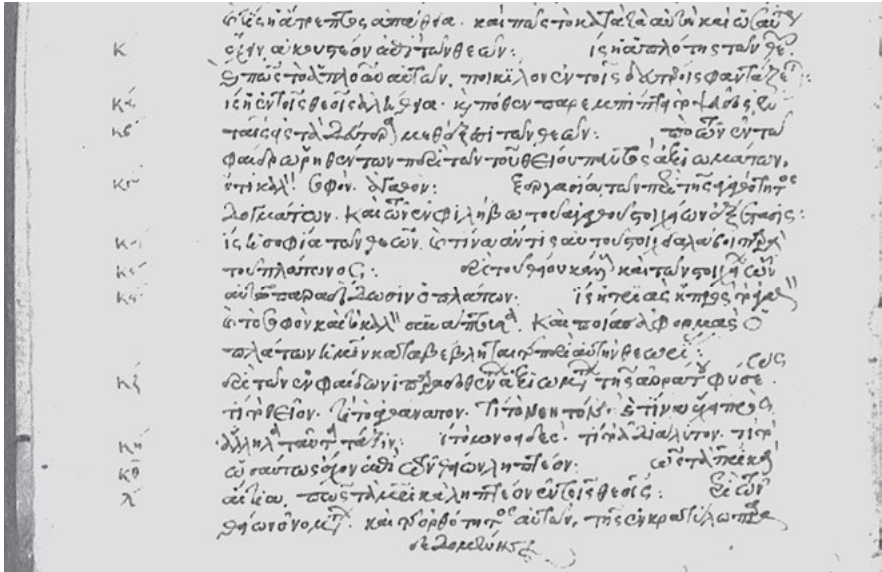 τίς ἡ ἄτρεπτος ἀπάθεια. καὶ πῶς τὸ κατὰ τὰ αὐτὰ καὶ ὡσαύτως
κ ἔχειν ἀκουστέον ἐπὶ τῶν θεῶν: ίς ἡ ἁπλότης τῶν θε.
καὶ πῶς τὸ ἁπλοῦν αὐτῶν, ποικίλον ἐν τοῖς δευτέροις φαντάζεται:
κα ίς ἡ ἐν τοῖς θεοῖς ἀλήθεια. καὶ πόθεν παρεμπίπτει τὸ ψεῦδος ἐν
κβ ταῖς εἰς τὰ δεύτερα μεθέξεσι τῶν θεῶν: τῶν ἐν τῶ
φαίδρω ῥηθέντων περὶ τοῦ θείου παντὸς ἀξιωμάτων,
κγ ὅτι καλόν. σοφόν. ἀγαθόν: ξεργασία τῶν περὶ τῆς ἀγαθότητος
δογμάτων. καὶ τῶν ἐν φιλήβω τοῦ ἀγαθοῦ στοιχείων ἐξέτασις:
κδ ίς ἡ σοφία τῶν θεῶν. καὶ τίνα ἄν τις αὐτοῦ στοιχεῖα λάβοι παρὰ
κε τοῦ πλάτωνος: ερὶ τοῦ θείου κάλλους καὶ τῶν στοιχείων
κς αὐτοῦ παραδίδωσιν ὁ πλάτων: ίς ἡ τριὰς
τὸ σοφὸν καὶ τὸ καλὸν συνάπτουσα. καὶ ποίας ἀφορμὰς ὁ
πλάτων ἡμῖν καταβέβληται περὶ αὐτὴν θεωρίας:
κζ ερὶ τῶν ἐν φαίδωνι παραδοθέντων ἀξιωμάτων τῆς ἀοράτου φύσεως
τί τὸ θεῖον. τί τὸ ἀθάνατον. τί τὸ νοητόν. καὶ τίνα ἔχει πρὸς
κη ἄλληλα ταῦτα τάξιν: ί τὸ μονοειδές. τί τὸ ἀδιάλυτον. τί τὸ
κθ ὡσαύτως ἔχον ἐπὶ τῶν θείων ληπτέον: ῶς τὰ πατρικὰ
λ αἴτια, πῶς τὰ μητρικὰ ληπτέον ἐν τοῖς θεοῖς: ερὶ τῶν
θείων ὀνομάτων. καὶ τῆς ὀρθότητος αὐτῶν, τῆς ἐν κρατύλω παρα
δεδομένης